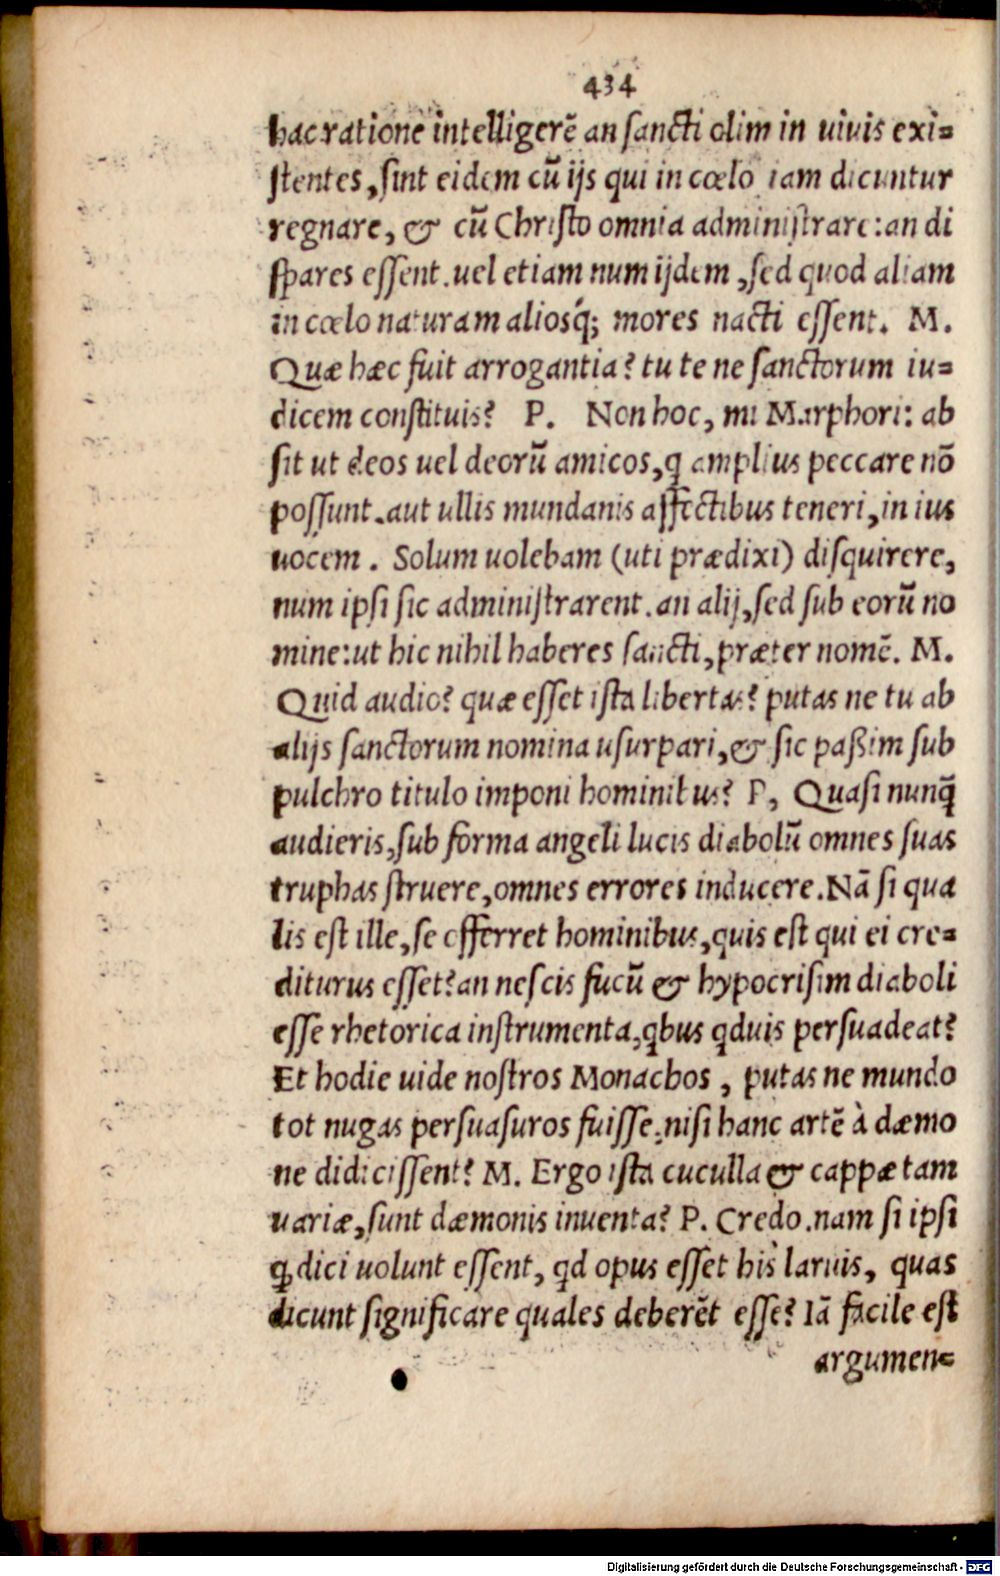 434
hac ratione intelligerē an sancti olim in uiuis exi=
stentes, sint eidem cū ijs qui in cœlo iam dicuntur
regnare, & cū Christo omnia administrare: an di
spares essent. uel etiam num ijdem, sed quod aliam
in cœlo naturam aliosq́; mores nacti essent. M.
Quæ hæc fuit arrogantia? tu te ne sanctorum iu=
dicem constituis? P. Non hoc, mi Marphori: ab
sit ut deos uel deorū amicos, q amplius peccare nō
possunt. aut ullis mundanis affectibus teneri, in ius
uocem. Solum uolebam (uti prædixi) disquirere,
num ipsi sic administrarent. an alij, sed sub eorū no
mine: ut hic nihil haberes sancti, præter nomē. M.
Quid audio? quæ esset ista libertas? putas ne tu ab
alijs sanctorum nomina usurpari, & sic paßim sub
pulchro titulo imponi hominibus? P, Quasi nunq̄
audieris, sub forma angeli lucis diabolū omnes suas
truphas struere, omnes errores inducere. Nā si qua
lis est ille, se efferret hominibus, quis est qui ei cre=
diturus esset? an nescis fucū & hypocrisim diaboli
esse rhetorica instrumenta, qbus qduis persuadeat?
Et hodie uide nostros Monachos, putas ne mundo
tot nugas persuasuros fuisse, nisi hanc artē à dæmo
ne didicissent? M. Ergo ista cuculla & cappæ tam
uariæ, sunt dæmonis inuenta? P. Credo. nam si ipsi
q dici uolunt essent, qd opus esset his laruis, quas
dicunt significare quales deberēt esse? Iā facile est
argumen=
Digitalisierung gefördert durch die Deutsche Forschungsgemeinschaft - DFG